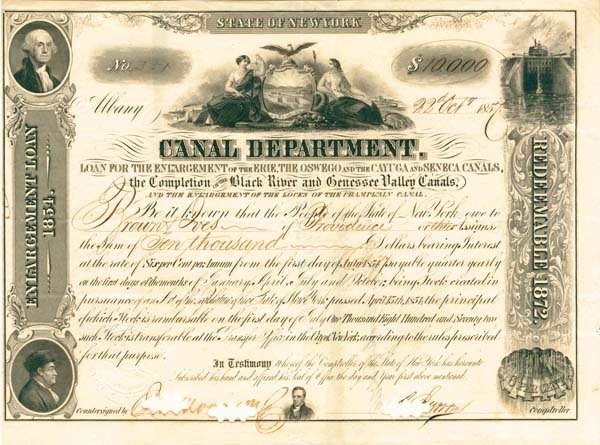 STATE OF NEW YORK
No.
$10,000
Albany, 22d Oct. 1857
CANAL DEPARTMENT.
LOAN FOR THE ENLARGEMENT OF THE ERIE, THE OSWEGO AND THE CAYUGA AND SENECA CANALS,
the Completion of the Black River and Genessee Valley Canals,
AND THE ENLARGEMENT OF THE LOCKS OF THE CHAMPLAIN CANAL.
Be it known that the People of the State of New York, owe to
Brown & Ives of Providence or their Assigns,
the Sum of Ten thousand Dollars bearing Interest
at the rate of Six per Cent per Annum from the first day of July 1857 payable quarter yearly
on the first days of the months of January, April, July and October, being Stock created in
pursuance of an Act of the Legislature of the State of New York passed April 15th, 1854 the principal
of which Stock is reimbursable on the first day of July One Thousand Eight Hundred and Seventy two
such Stock is transferable at the Transfer Office in the City of New York, according to the rules prescribed
for that purpose.
In Testimony Whereof the Comptroller of the State of New York has hereunto
Subscribed his hand and affixed his Seal of Office the day and Year first above mentioned
Countersigned by
Comptroller
ENLARGEMENT LOAN 1854.
REDEEMABLE 1872.
6 PER CENT